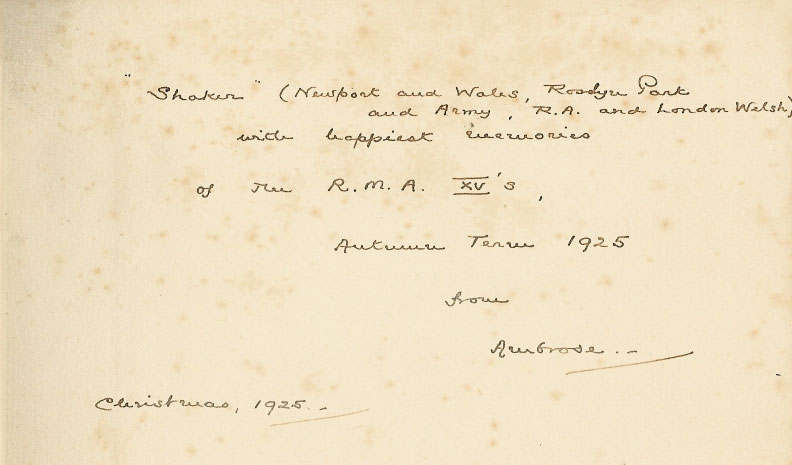 "Shaker" (Newport and Wales, Rosslyn Park
and Army, R.A. and London Welsh)
with happiest memories
of the R.M.A. XV's,
Autumn Term 1925
from
Ambrose.-
Christmas, 1925.-